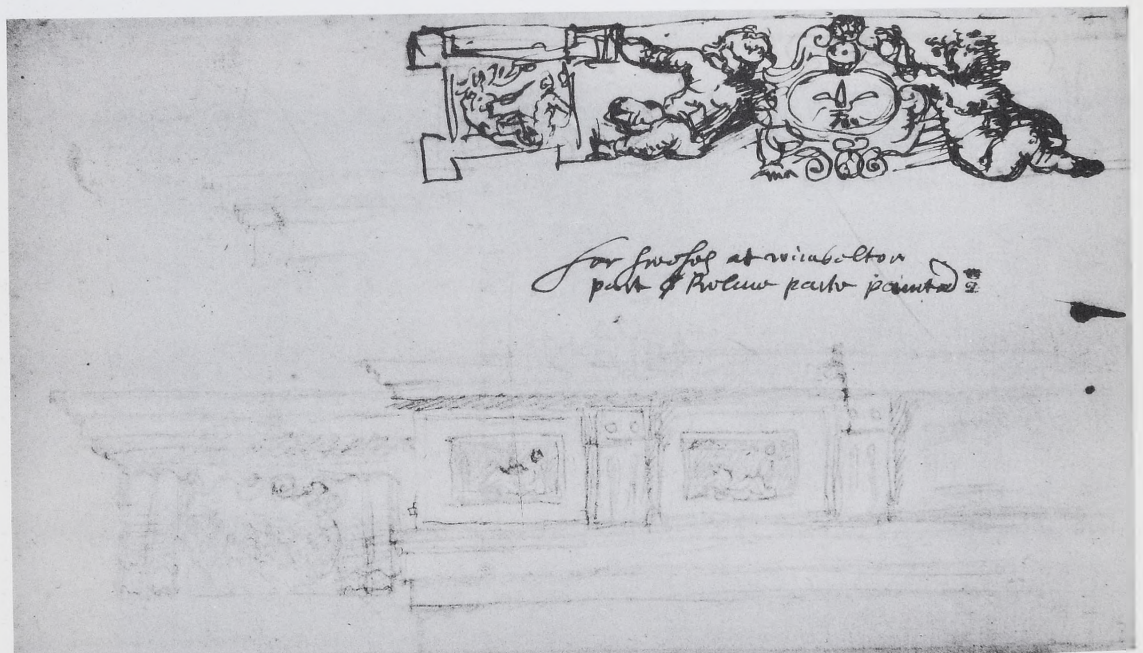 for freses at wimbelton
part of Releue parte painted